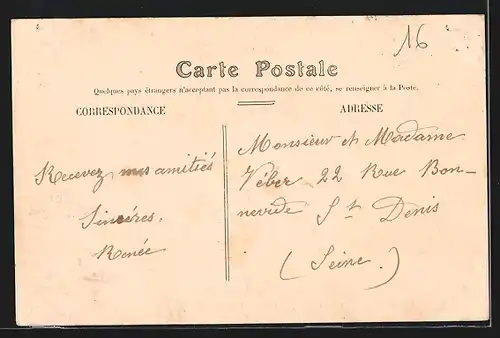 16
Carte Postale
Quelques pays étrangers n'acceptant pas la correspondance de ce côté, se renseigner à la Poste.
CORRESPONDANCE
ADRESSE
Recevez mes amitiés
Sincères,
Renée
Monsieur et Madame
Véber 22 Rue Bon-
nevide St Denis
(Seine.)